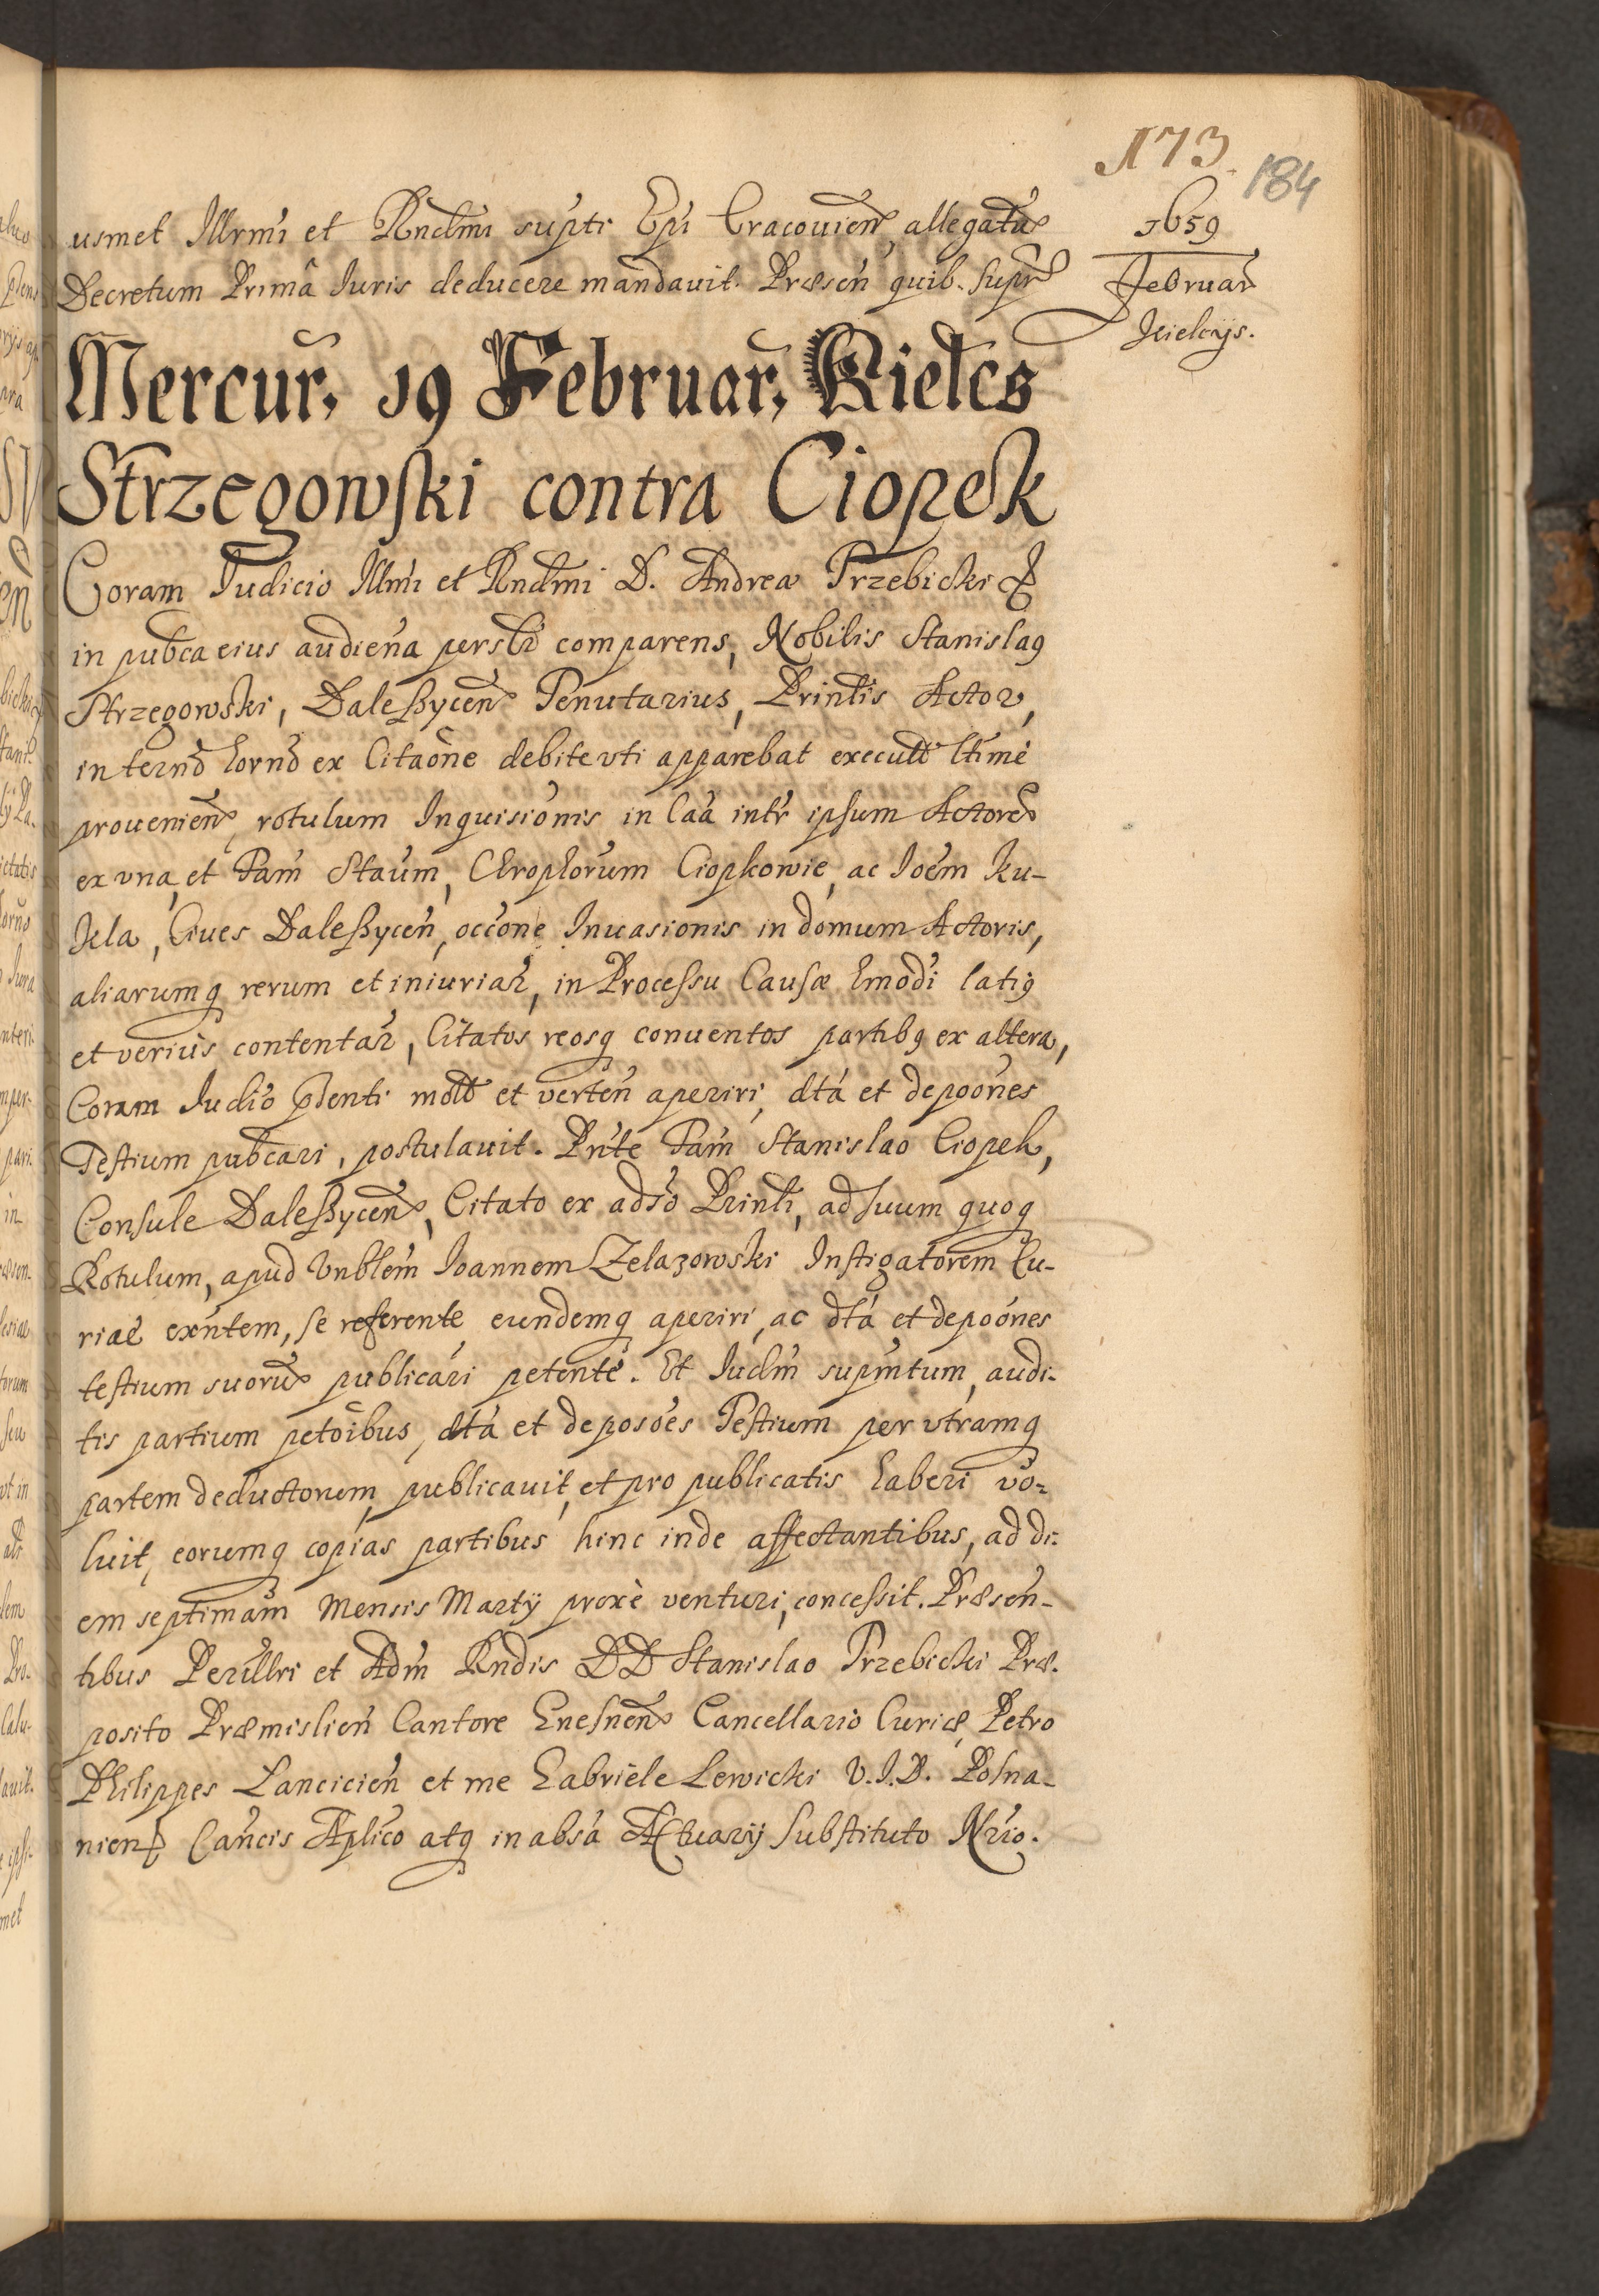 173.
184
1659
Februar
Kielcijs.
usmet Illrmi et Rndmi supti Epi Cracovien allegatu
Decretum Prima Iuris deducere mandavit. Præsen quib. supr
Mercur, 19 Februar, Kielcs
Strzegowski contra Ciopek
Coram Iudicio Illmi et Rndmi D. Andreæ Trzebicki &
in pubca eius audiena persli comparens, Nobilis Stanislaꝯ
Strzegowski, Daleszycen Tenutarius, Prinlis Actor,
in termo hormo ex Citaone debite vti apparebat execult ltime
provenien, rotulum Inquisionis in Caa intr ipsum Actore
ex vna, et Fam Staum, Chrophorum Ciopkowie, ac Joem Ku-
kla, Cives Daleszycen, occone Invasionis in domum Actoris,
aliarumq rerum et iniuriar, in Processu Causæ hmodi latiꝯ
et verius contentar, Citatos reosq conventos partibꝯ ex altera,
Coram Iudio pnti mott et verten aperiri, dta et depoones
Testium pubcari, postulavit. Pnte Fam Stanislao Ciopek,
Consule Daleszycen, Citato ex adso Prinli, ad suum quoq
Rotulum, apud Vnblem Joannem Zelazowski Instigatorem Cu-
riae exntem, se referente eundemq aperiri, ac dta et depoones
testium suoru publicari petente. Et Iudm supmtum, audi-
tis partium petoibus, dta et deposoes Testium per vtramq
partem deductorum, publicavit, et pro publicatis haberi vo-
luit, eorumq copias partibus hinc inde affectantibus, ad di-
em septimam Mensis Martij proxe venturi, concessit. Præsen-
tibus Perillri et Adm Rndis DD Stanislao Trzebicki Præ-
posito Præmislien Cantore Gnesnen Cancellario Curiæ, Petro
Philippes Lancicien et me Gabriele Lewicki V.I.D. Posna-
nien Cancis Aplico atq in absa Actuarij Substituto Nrio.